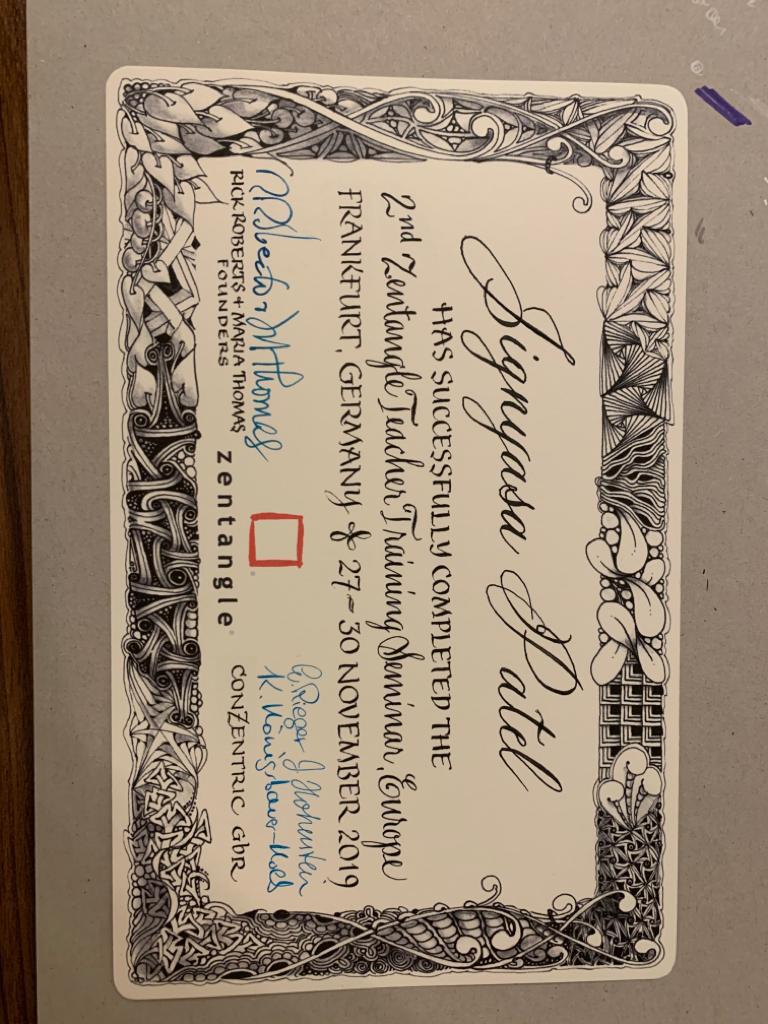 Jignyasa Patel
HAS SUCCESSFULLY COMPLETED THE
2nd Zentangle Teacher Training Seminar, Europe
FRANKFURT, GERMANY & 27-30 NOVEMBER 2019
RICK ROBERTS + MARIA THOMAS
FOUNDERS
zentangle®
G. Rieger J. Hohenstein
CONZENTRIC GbR